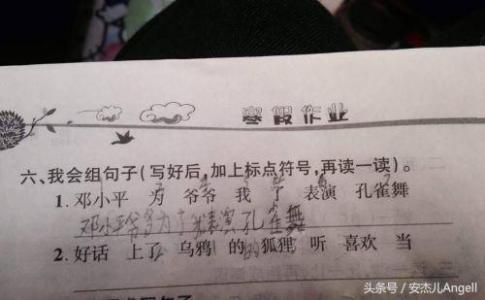 寒假作业
六、我会组句子(写好后,加上标点符号,再读一读)。
1.邓小平 为 爷爷 我 了 表演 孔雀舞
邓小平爷爷为了我表演孔雀舞
2.好话 上了 乌鸦 的 狐狸 听 喜欢 当
头条号 / 安杰儿Angell